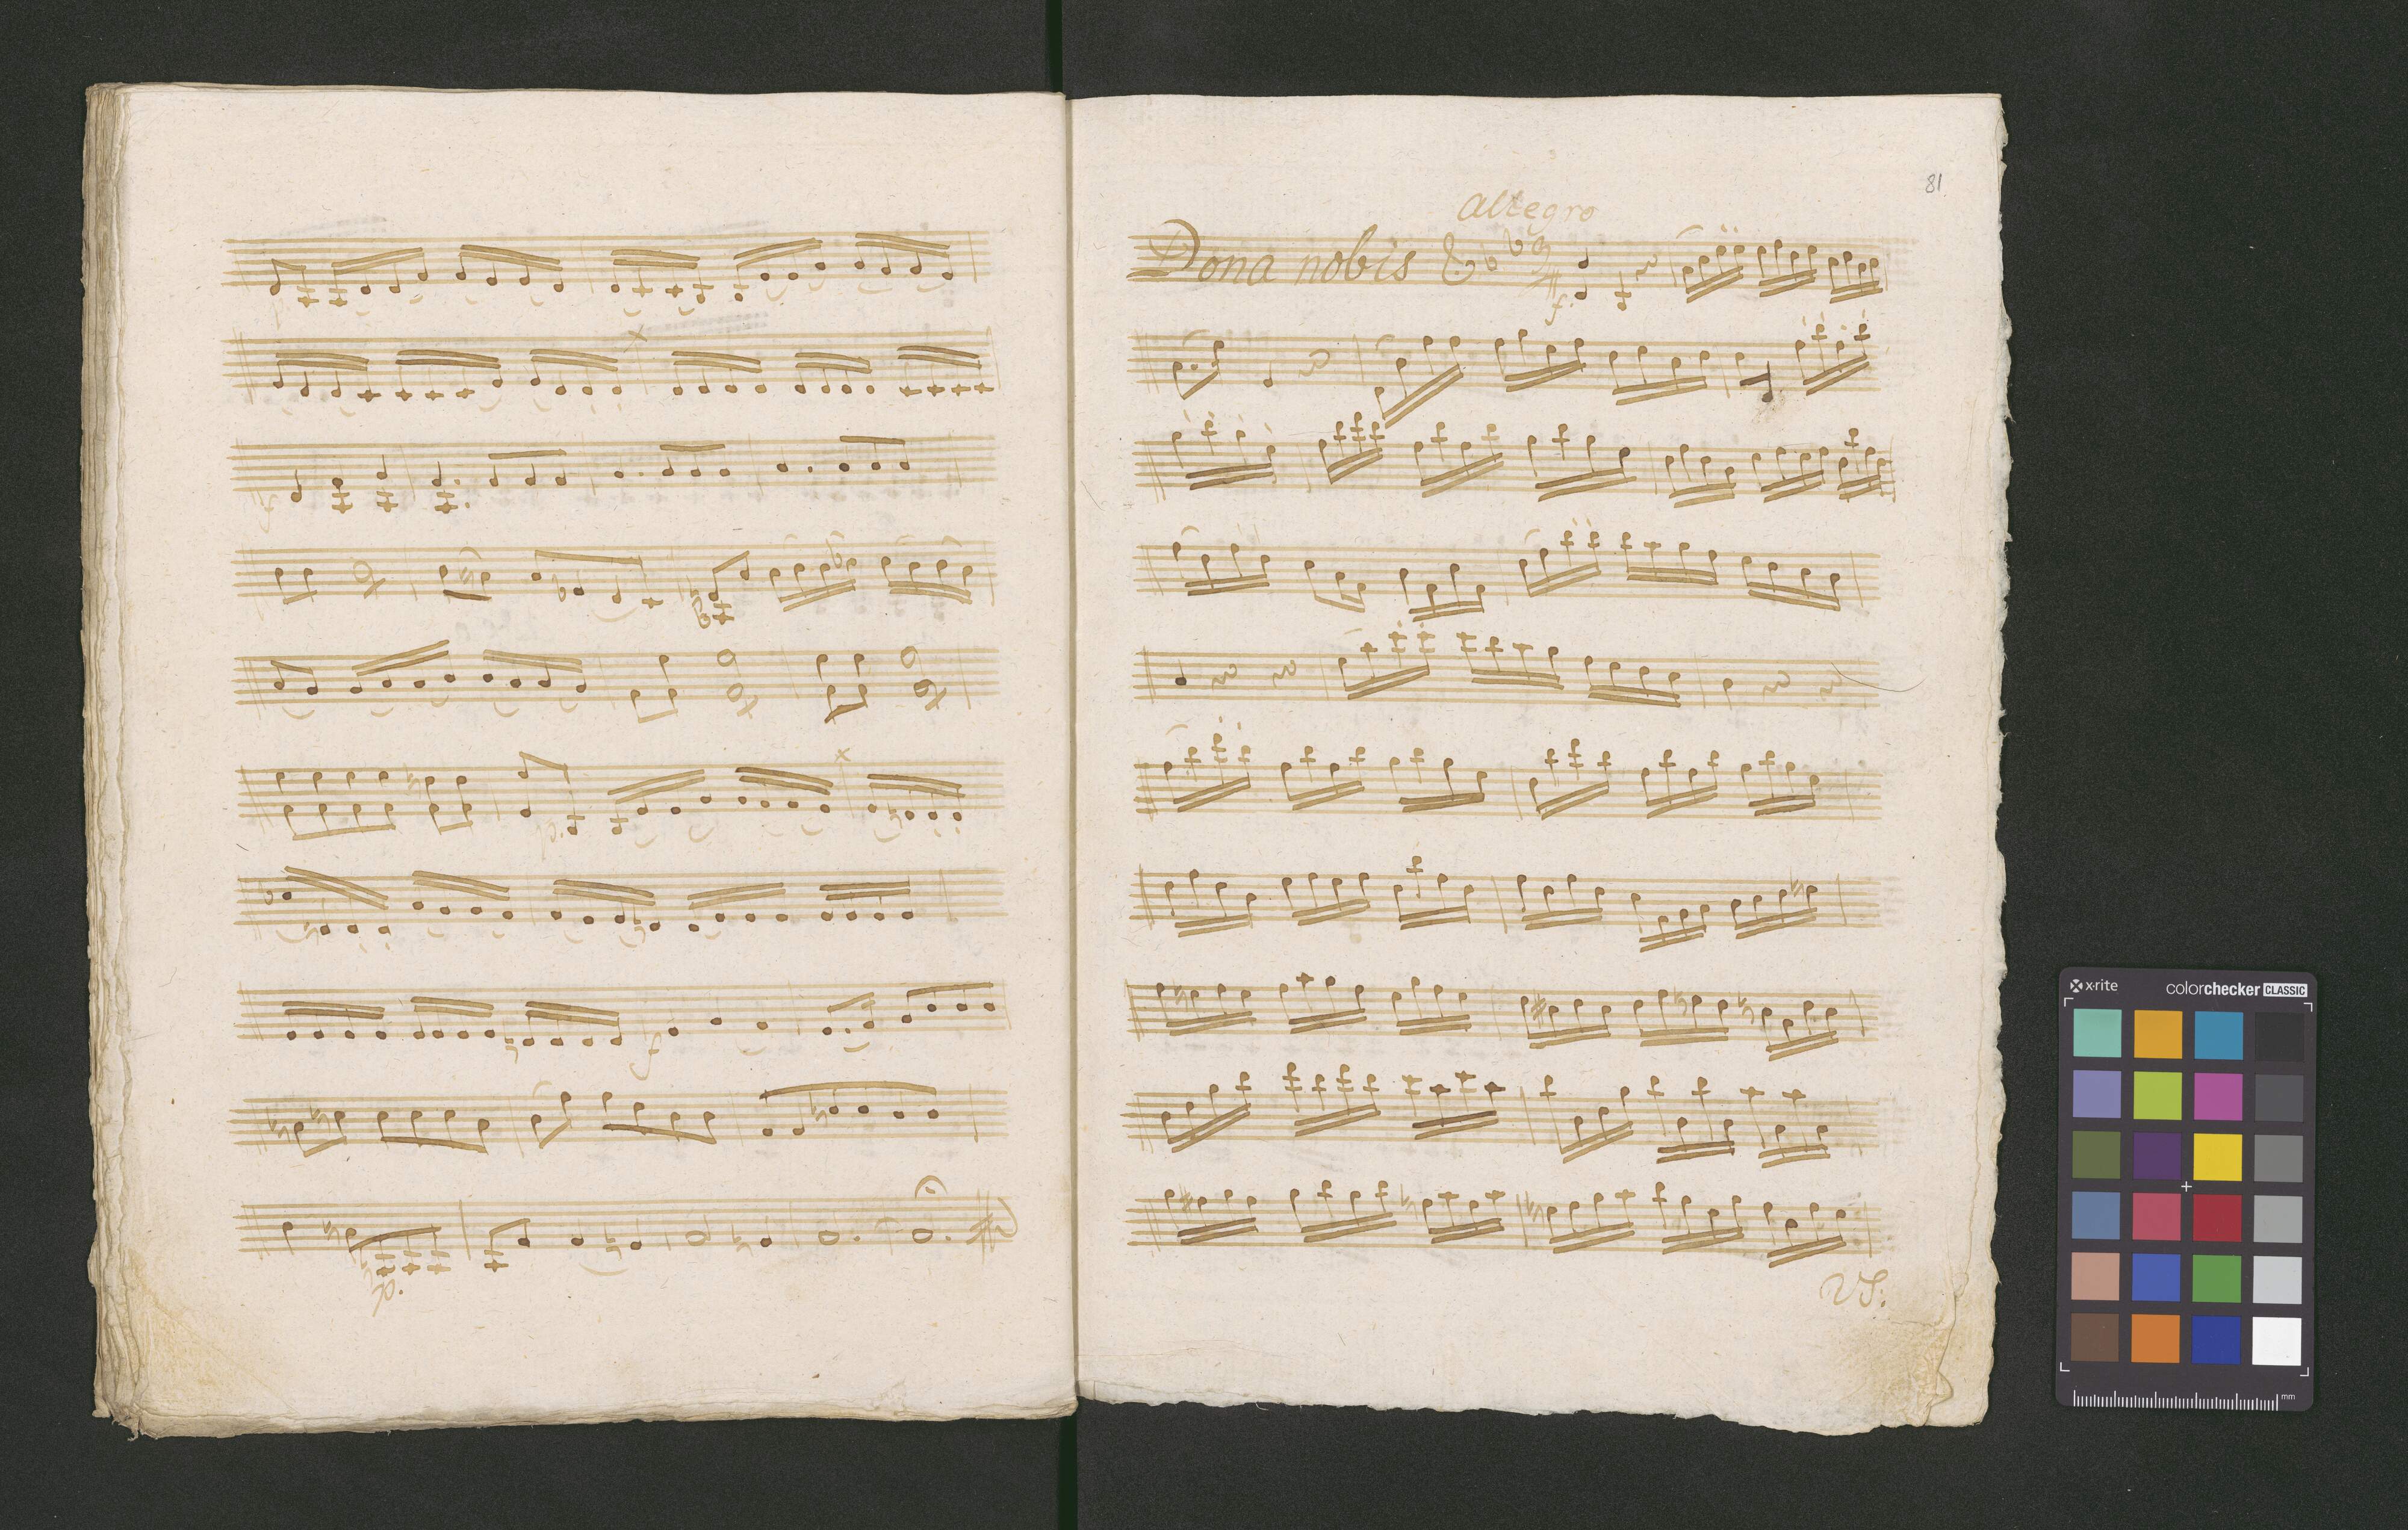 81
Allegro
Dona nobis
f.
f
p.
f
p.
VS:
x-rite
colorchecker CLASSIC
mm